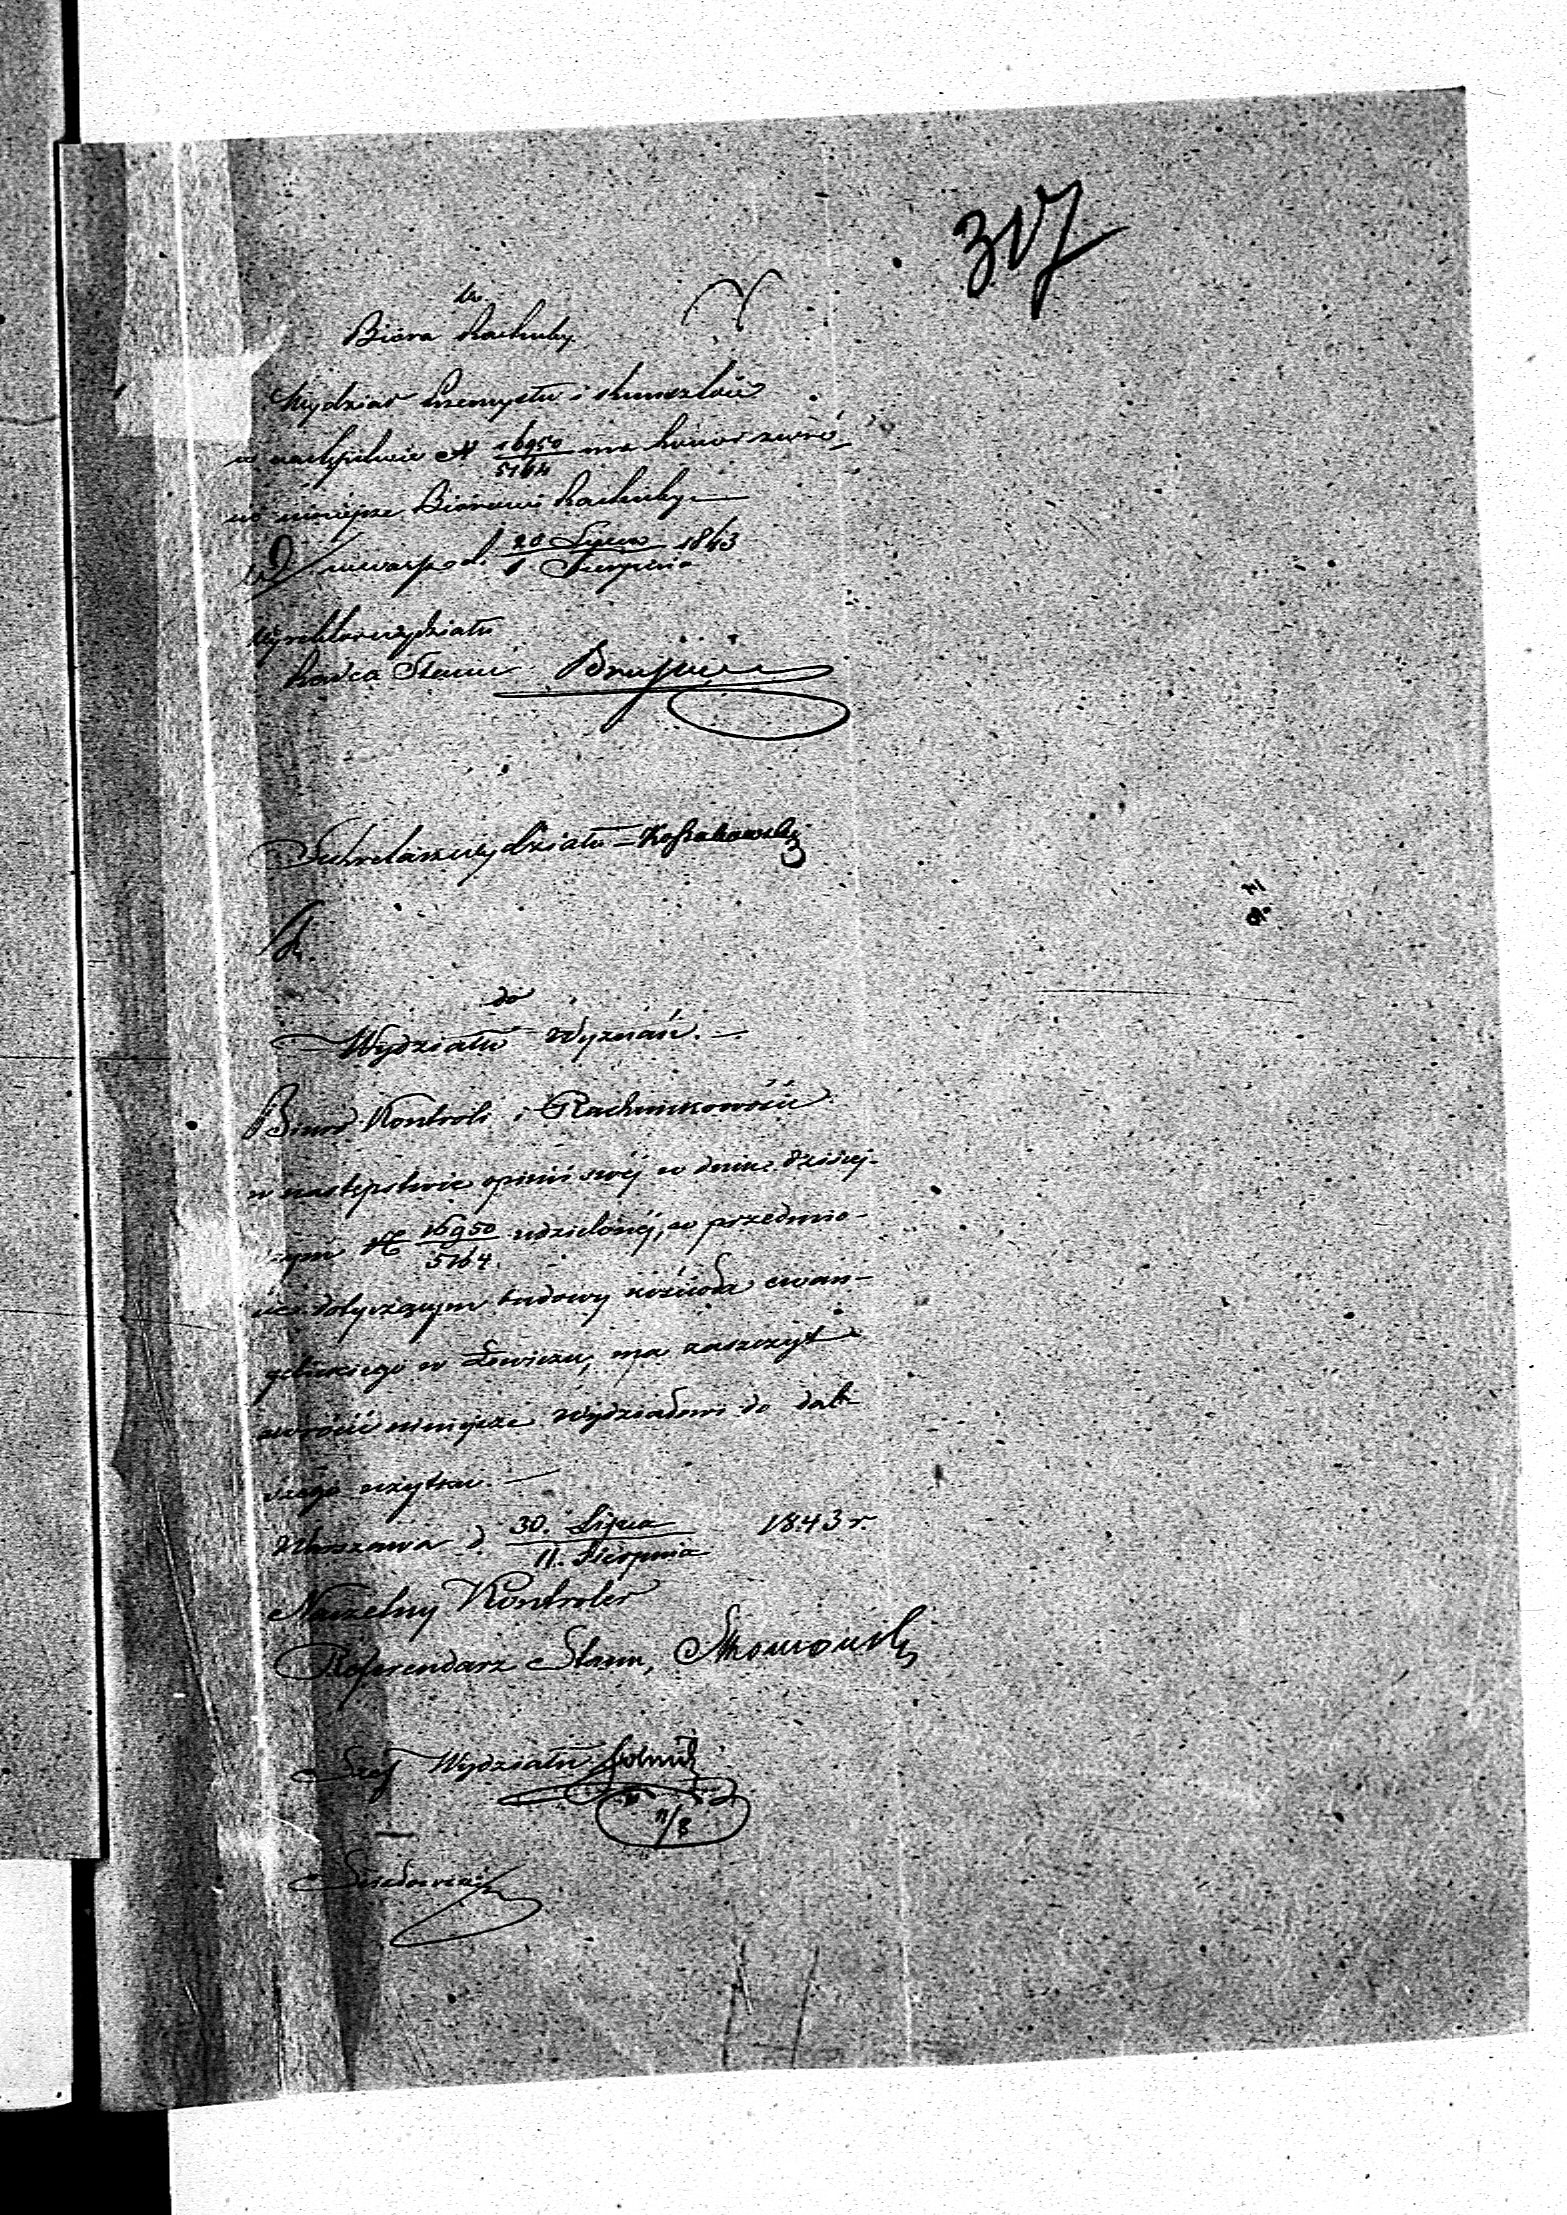 317
do
Bióra Rachuby
Wydział Przemysłu i Kunsztów
w następstwie N 16950/5164 ma honor zwró-
cić niniejsze Biórowi Rachuby
d. 20 Lipca/1 Sierpnia 1843
Dyrektor Wydziału
Radca Stanu
Sekretarz Wydziału – Kossakowski
do
Wydziału Wyznań. —
Biuro Kontroli i Rachunkowości
w następstwie opinii swéj w dniu dzisiej-
szym N 16950/5164 udzielonéj, w przedmio-
cie dotyczącym budowy kościoła ewan-
gelickiego w Łowiczu, ma zaszczyt
zwrócić niniejsze Wydziałowi do dal-
szego użytku. —
Warszawa d. 30. Lipca/11. Sierpnia 1843 r.
Naczelny Kontroler
Referendarz Stanu,
Szef Wydziału
11/8